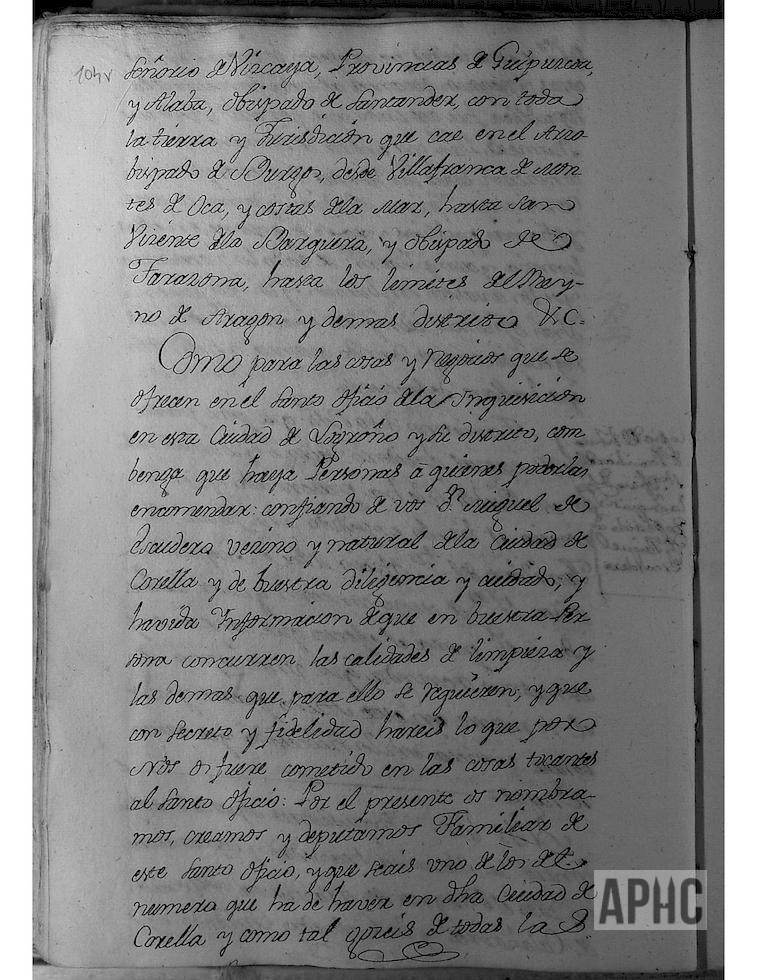 104v
Señorio de Vizcaya, Provincias de Guipuzcoa,
y Alaba, Obispado de Santander, con toda
la tierra y Jurisdicion que cae en el Arzo
bispado de Burgos, desde Villafranca de Mon
tes de Oca, y costas dela Mar, hasta San
Vizente dela Barquera, y Obispado de
Tarazona, hasta los limites del Rey-
no de Aragon y demas distrito &c.
Como para las cosas y Negocios que se
ofrecen en el Santo Oficio dela Inquisicion
en esta Ciudad de Logroño y su distrito, com
benga que haya Personas à quienes poderlas
encomendar: confiando de vos Dn. Miguel de
Escudero vezino y natural dela Ciudad de
Corella y de buestra diligencia y cuidado; y
havida Informacion de que en buestra Per
sona concurren las calidades de limpieza y
las demas que para ello se requieren, y que
con Secreto y fidelidad hareis lo que por
Nos os fuere cometido en las cosas tocantes
al Santo Oficio: Por el presente os nombra-
mos, creamos y deputamos Familiar de
este Santo Oficio, y que seais uno de los del
numero que ha de haver en dha Ciudad de
Corella y como tal gozeis de todas las
APHC